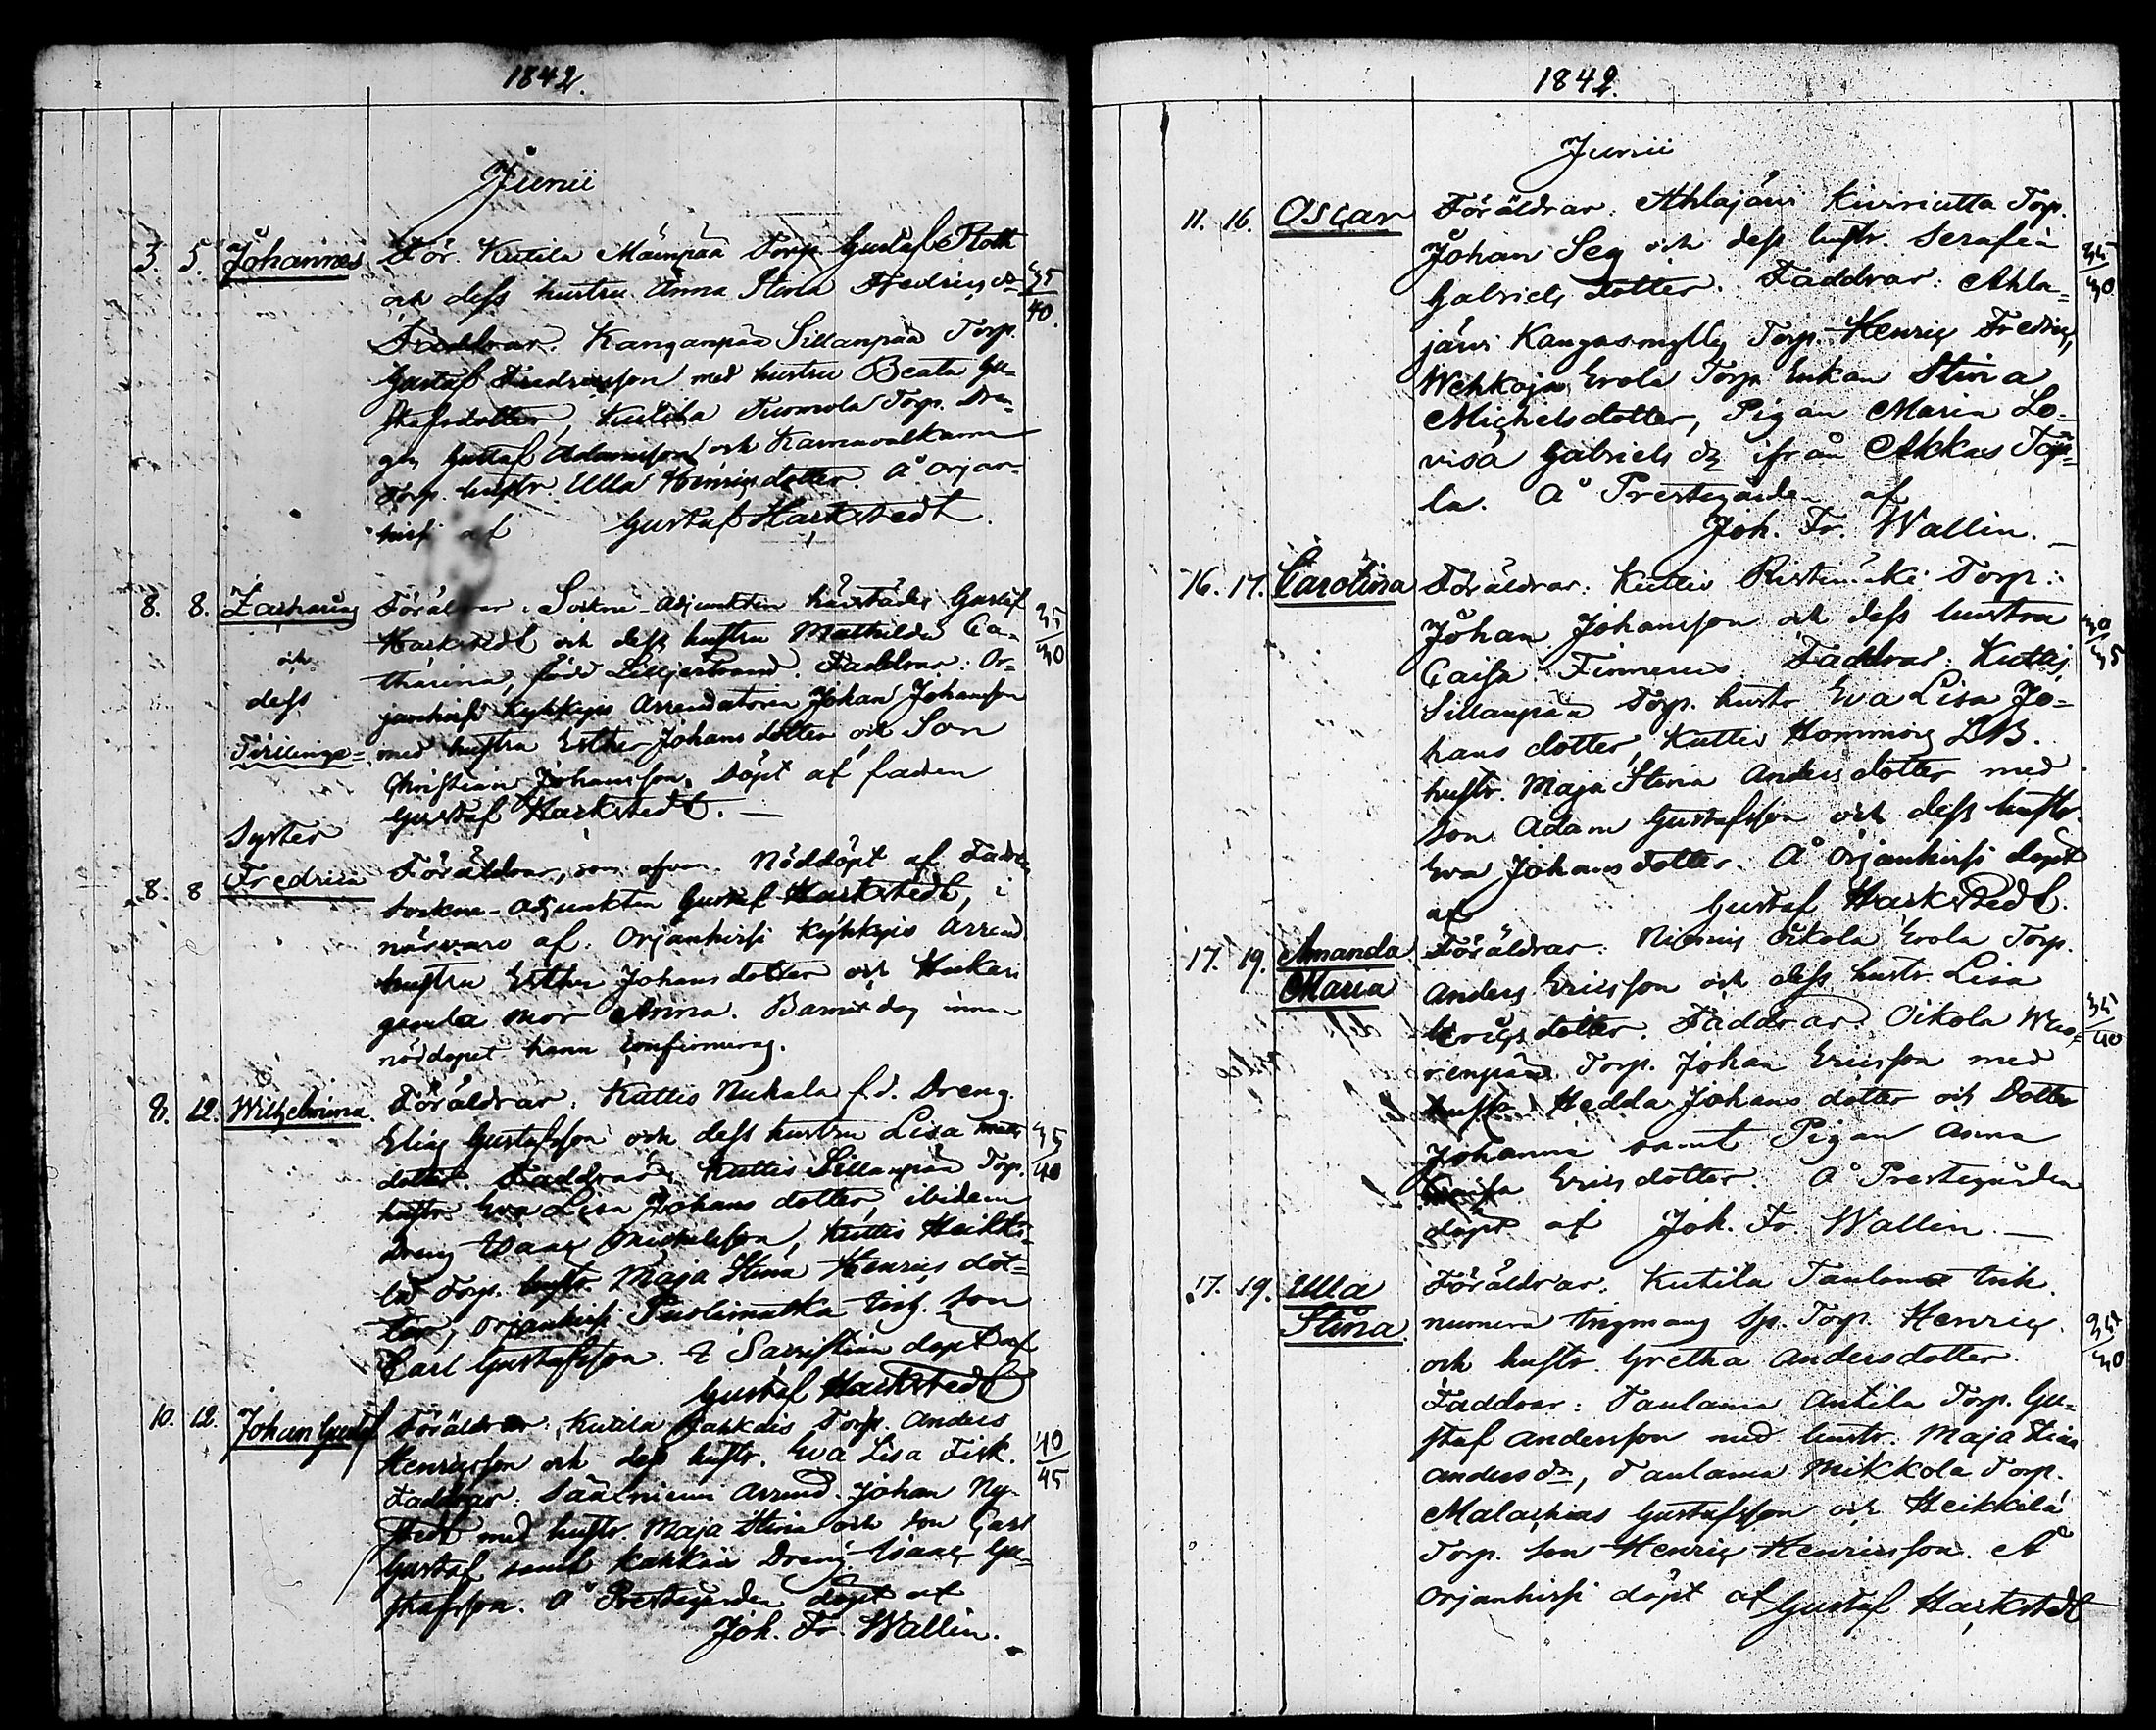 1842.
Junii
3. 5. Johannes För. Kutila Mäenpää Torp. Gustaf Roth
och dess hustru Anna Stina Fredrics dr 35/40.
Faddrar. Kanganpää Sillanpää Torp.
Gustaf Fredricsson med hustru Beata Gu=
stafsdotter, Kutila Tuomola Torp. Dren=
gen Gustaf Adamsson och
Torp. hustr. Ulla Henricsdotter. Å Orjan=
hirfi af Gustaf Harkstedt.
8. 8. Zacharias Föräldrar: Sockne-Adjunkten härstädes Gustaf 35/30
och Harkstedt och dess hustru Mathilda Ca=
tharina, född Lilljestrand. Faddrar: Or=
dess janhirfi Kyhkyis Arrendatoren Johan Johansson
Tvillinge= med hustru Esther Johansdotter och Son
Christian Johansson. Döpt af fadren
Gustaf Harkstedt. —
Syster
8. 8 Fredrica Föräldrar, som ofvan. Nöddöpt af Fadren
Sockne-Adjunkten Gustaf Harkstedt, i
närvaro af: Orjanhirfi Kyhkyis Arrend.
hustru Esther Johansdotter och
gamla mor Anna. Barnet dog innan
nöddopet hann confirmeras.
8. 12. Wilhelmina. Föräldrar. Kuttis Nukala f.d. Dreng
Elias Gustafsson och dess hustru Lisa Matts 35/40
dotter. Faddrar: Kuttis Sillanpää Torp.
hustr Eva Lisa Johansdotter, ibidem
Dreng Isaac Michelsson, Kuttis Heikki=
lä Torp. hustr. Maja Stina Henrics dot=
ter, Orjanhirfi Puolimatka Son
Carl Gustafsson. I döpt af
Gustaf Harkstedt
10. 12. Johan Gustaf Föräldrar: Kutila Torp. Anders
Henricsson och dess hustr. Eva Lisa Fisk. 40/45
Faddrar: Säärniemi Arrend. Johan Ny=
stedt med hustr. Maja Stina och Son Carl
Gustaf samt Dreng Isaac Gu=
stafsson. Å Prestegården döpt af
Joh. Fr. Wallin.
1842.
Junii
11. 16. Oscar Föräldrar: Ahlajärvi Torp.
Johan Seg och dess hustr. Serafia 35/30
Gabriels dotter. Faddrar: Ahla=
järvi Kangasmylly Torp. Henric Fredric,
Erola Torp. Enkan Stina
Michelsdotter, Pigan Maria Lo=
visa Gabriels dr ifrån Akkas
la. Å Prestegården af
Joh. Fr. Wallin. —
16. 17. Carolina Föräldrar: Kuttis Ristimäki Torp:
Johan Johansson och dess hustru 30/35
Caisa Faddrar: Kuttis
Sillanpää Torp. hustr Eva Lisa Jo=
hans dotter, Kuttis LB.
hustr. Maja Stina Anders dotter med
Son Adam Gustafsson och dess hustr.
Eva Johansdotter. Å Orjanhirfi döpt
af Gustaf Harkstedt.
17. 19. Amanda Föräldrar: Niemis Oikola Erola Torp.
Maria Anders Ericsson och dess hustr. Lisa
Erics dotter. Faddrar: Oikola Wuo= 35/40
renpää Torp. Johan Ericsson med
hustr. Hedda Johans dotter och Dotter
Johanna samt Pigan Anna
Ericsdotter. Å Prestegården
döpt af Joh. Fr. Wallin —
17. 19. Ulla Föräldrar: Kutila Taulama
Stina. Sp. Torp. Henric 35/30
och hustr. Gretha Andersdotter.
Faddrar: Taulama Antila Torp. Gu=
staf Andersson med hustr. Maja Stina
Anders dr, Taulama Mikkola Torp.
Malachias Gustafsson och Heikkilä
Torp. Son Henric Henricsson. Å
Orjanhirfi döpt af Gustaf Harkstedt